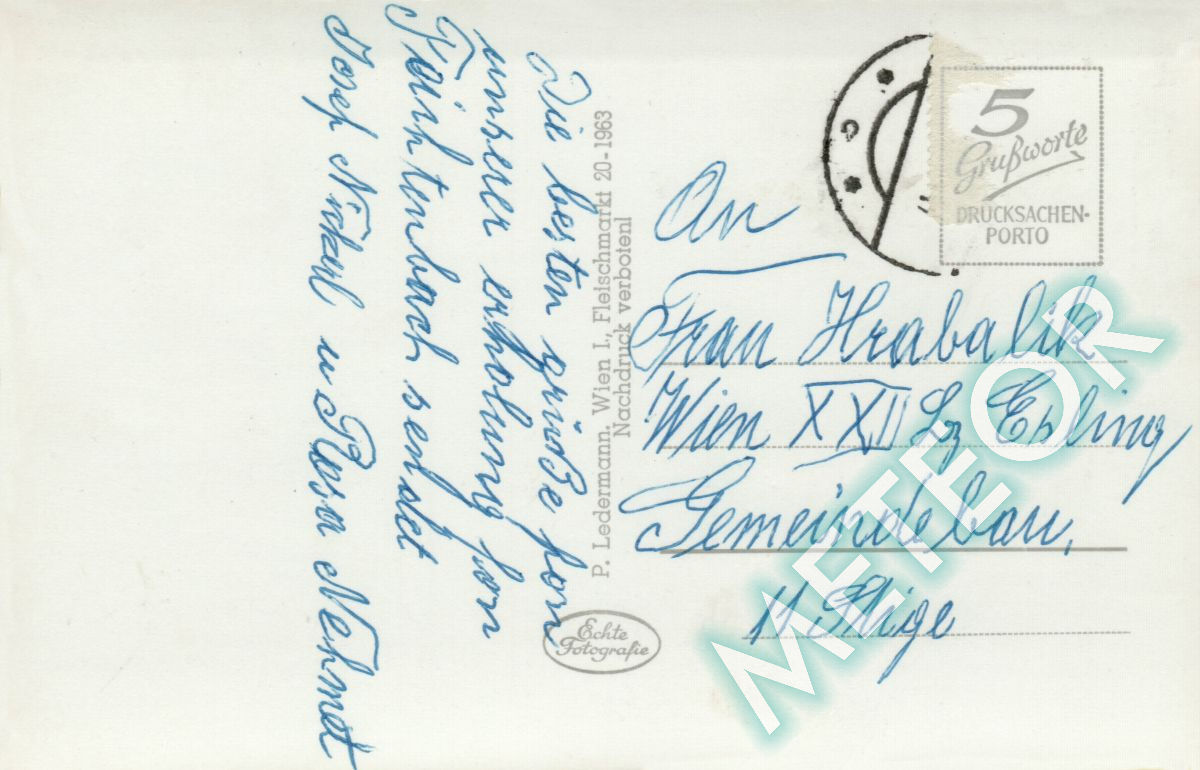 Die besten grüße fon
unserer erholung fon
Feichtenbach sendet
Josef Nickerl u Rosa Nehmet
P. Ledermann. Wien I., Fleischmarkt 20-1963
Nachdruck verboten!
Echte
Fotografie
5
Grußworte
DRUCKSACHEN-
PORTO
An
Frau Hrabalik
Wien XXII Esling
Gemeindebau,
11 Stige
METEOR